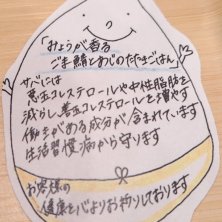 「みょうが香る
ごま鯖とあじのたたきごはん」
サバには
悪玉コレステロールや中性脂肪を
減らし、善玉コレステロールを増やす
働きがある成分が含まれています
生活習慣病から守ります
お客様の
健康を心よりお祈りしております